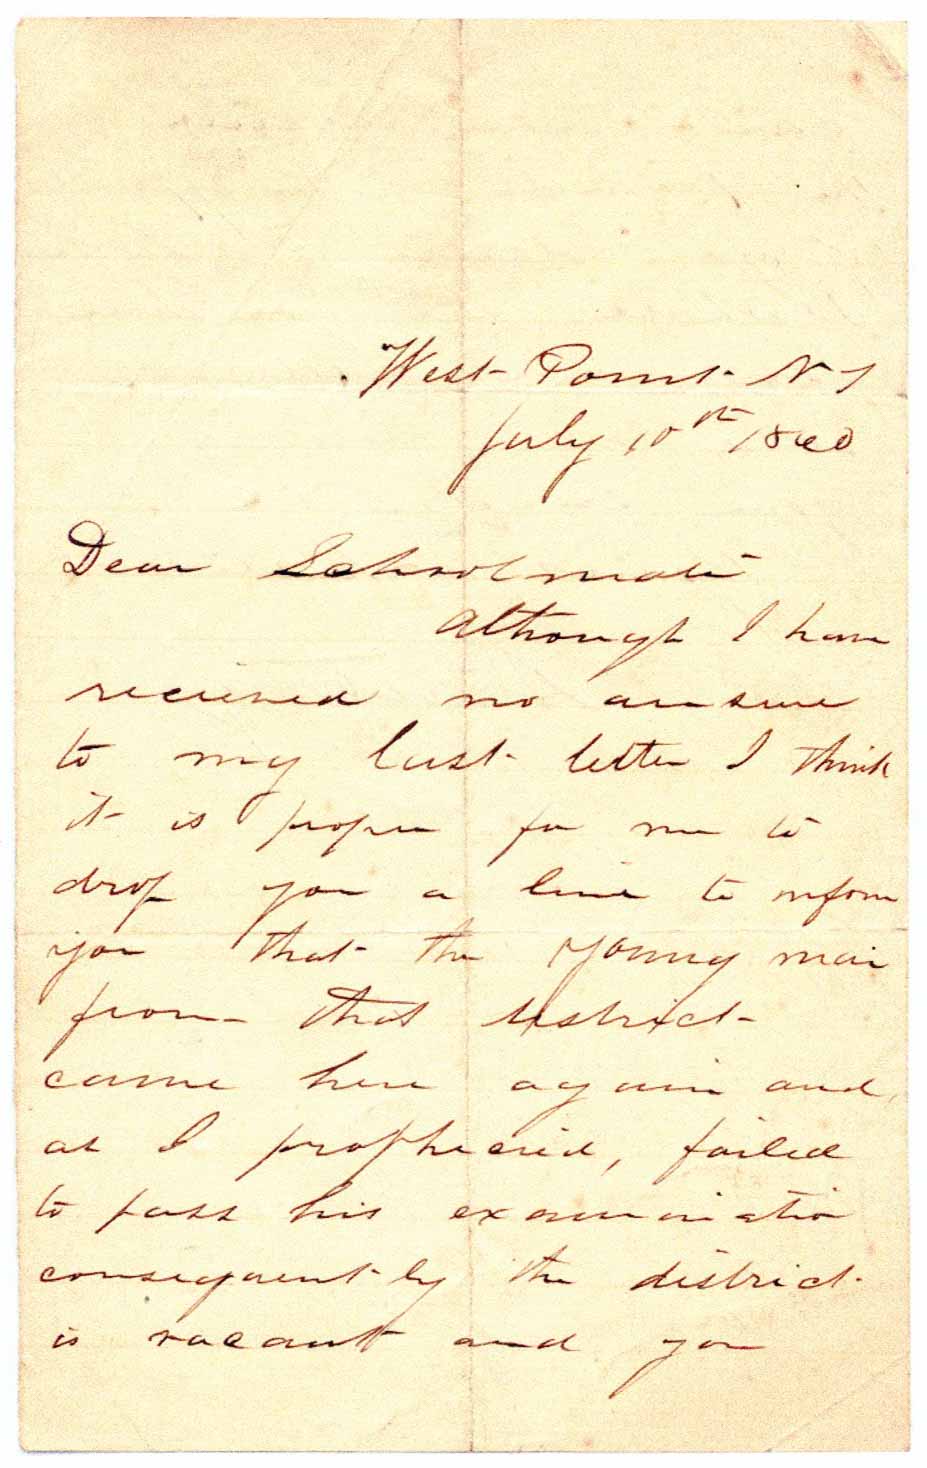 West Point N Y
July 10th 1860
Dear Schoolmate
Although I have
recieved no answer
to my last letter I think
it is proper for me to
drop you a line to inform
you that the young man
from that district
came here again and,
as I prophecied, failed
to pass his examination
consequently the district
is vacant and you